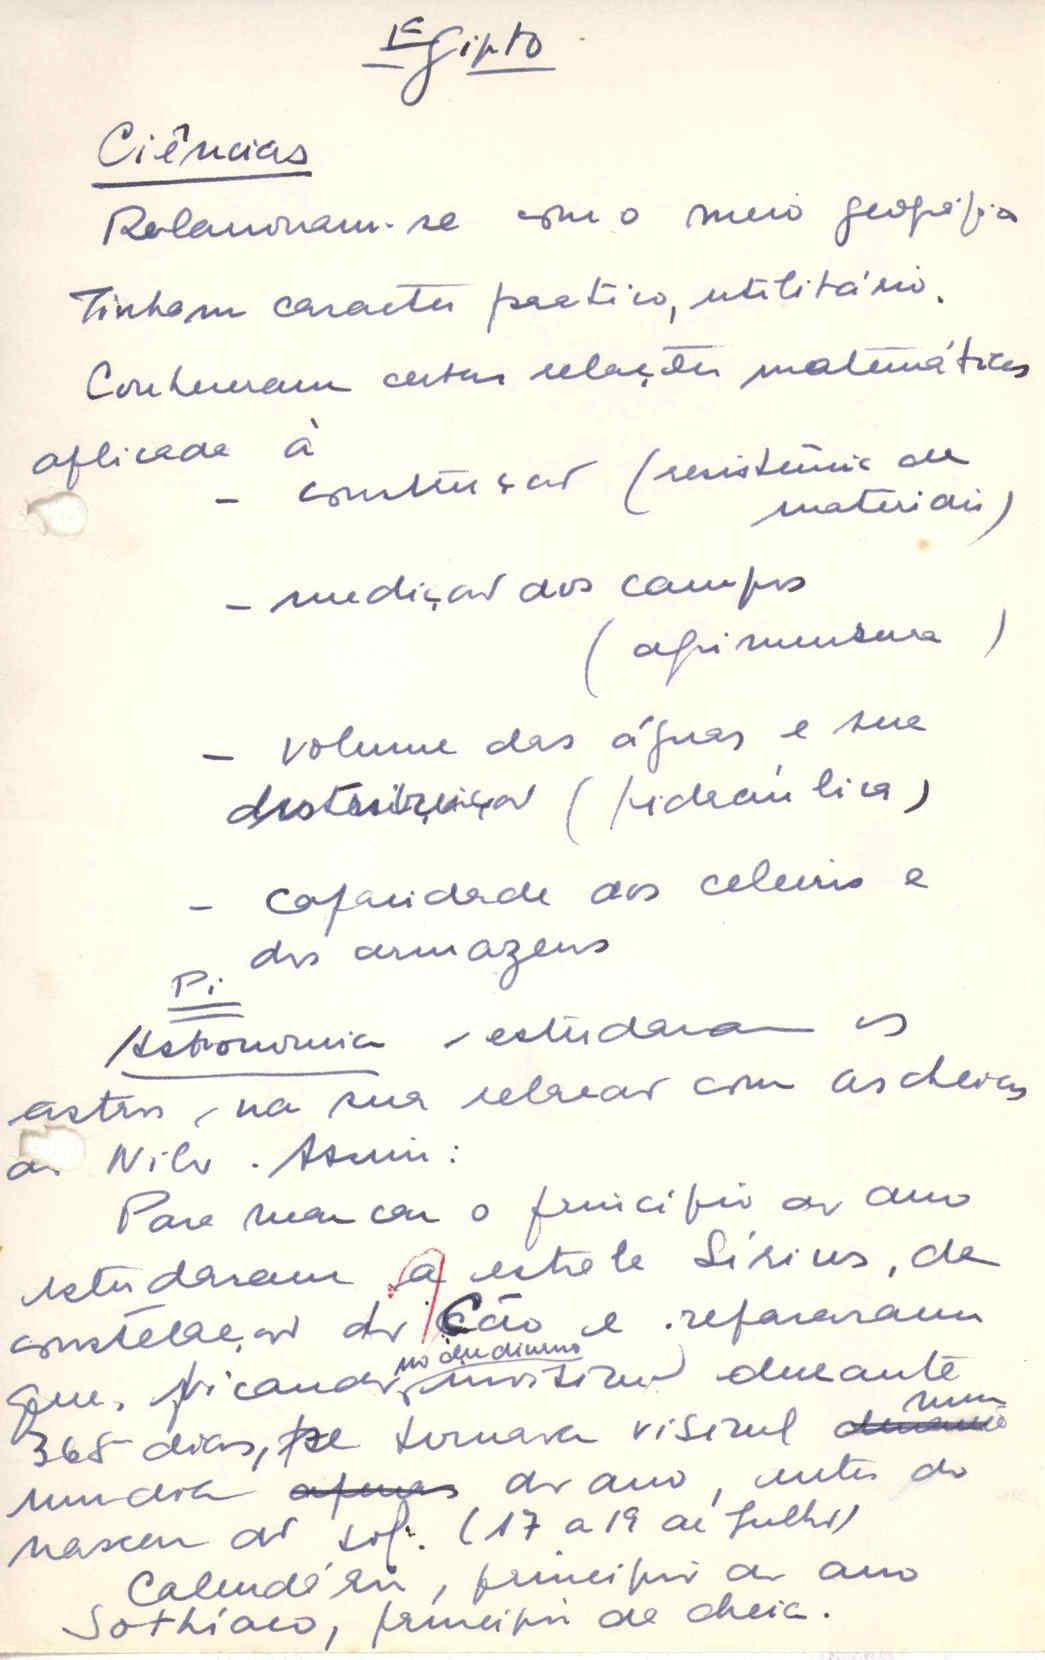 Egipto
Ciências
Relacionam-se com o meio geográfico
Tinham caracter pratico, utilitário.
Conheceram certas relações matemáticas
aplicada à
- construção (resistência de
materiais)
- medição dos campos
(agrimensura)
- volume das águas e sua
distribuição (hidraúlica)
- capacidade dos celeiros e
dos armazens
Pi
Astronomia - estudaram os
astros, na sua relação com as cheias
do Nilo. Assim:
Para marcar o princípio do ano
estudaram a estrela Sírius, da
constelação do Cão e repararam
no céu diurno
que, ficando invisivel durante
num
365 dias, se tornava visivel durante
num dia apenas do ano, antes do
nascer do sol. (17 a 19 de Julho)
Calendário, princípio do ano
Sothíaco, princípio da cheia.